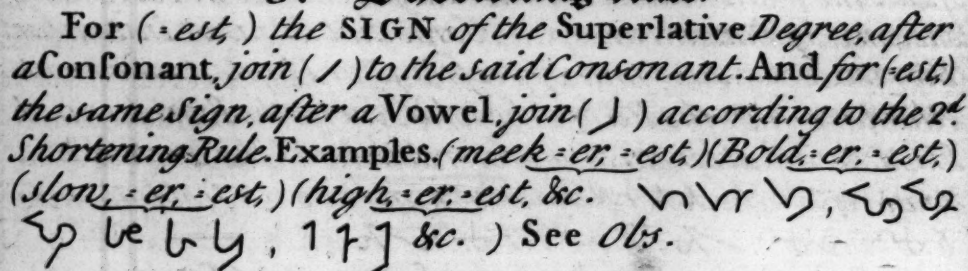 For (=est,) the SIGN of the Superlative Degree, after
a Conſonant, join ( / ) to the said Consonant. And for (=est,)
the same Sign, after a Vowel, join ( ) according to the 2d.
Shortening Rule. Examples. (meek=er, =est,) (Bold,=er.=est,)
(slow,=er,=est,) (high,=er,=est, &c.
&c. ) See Obs.